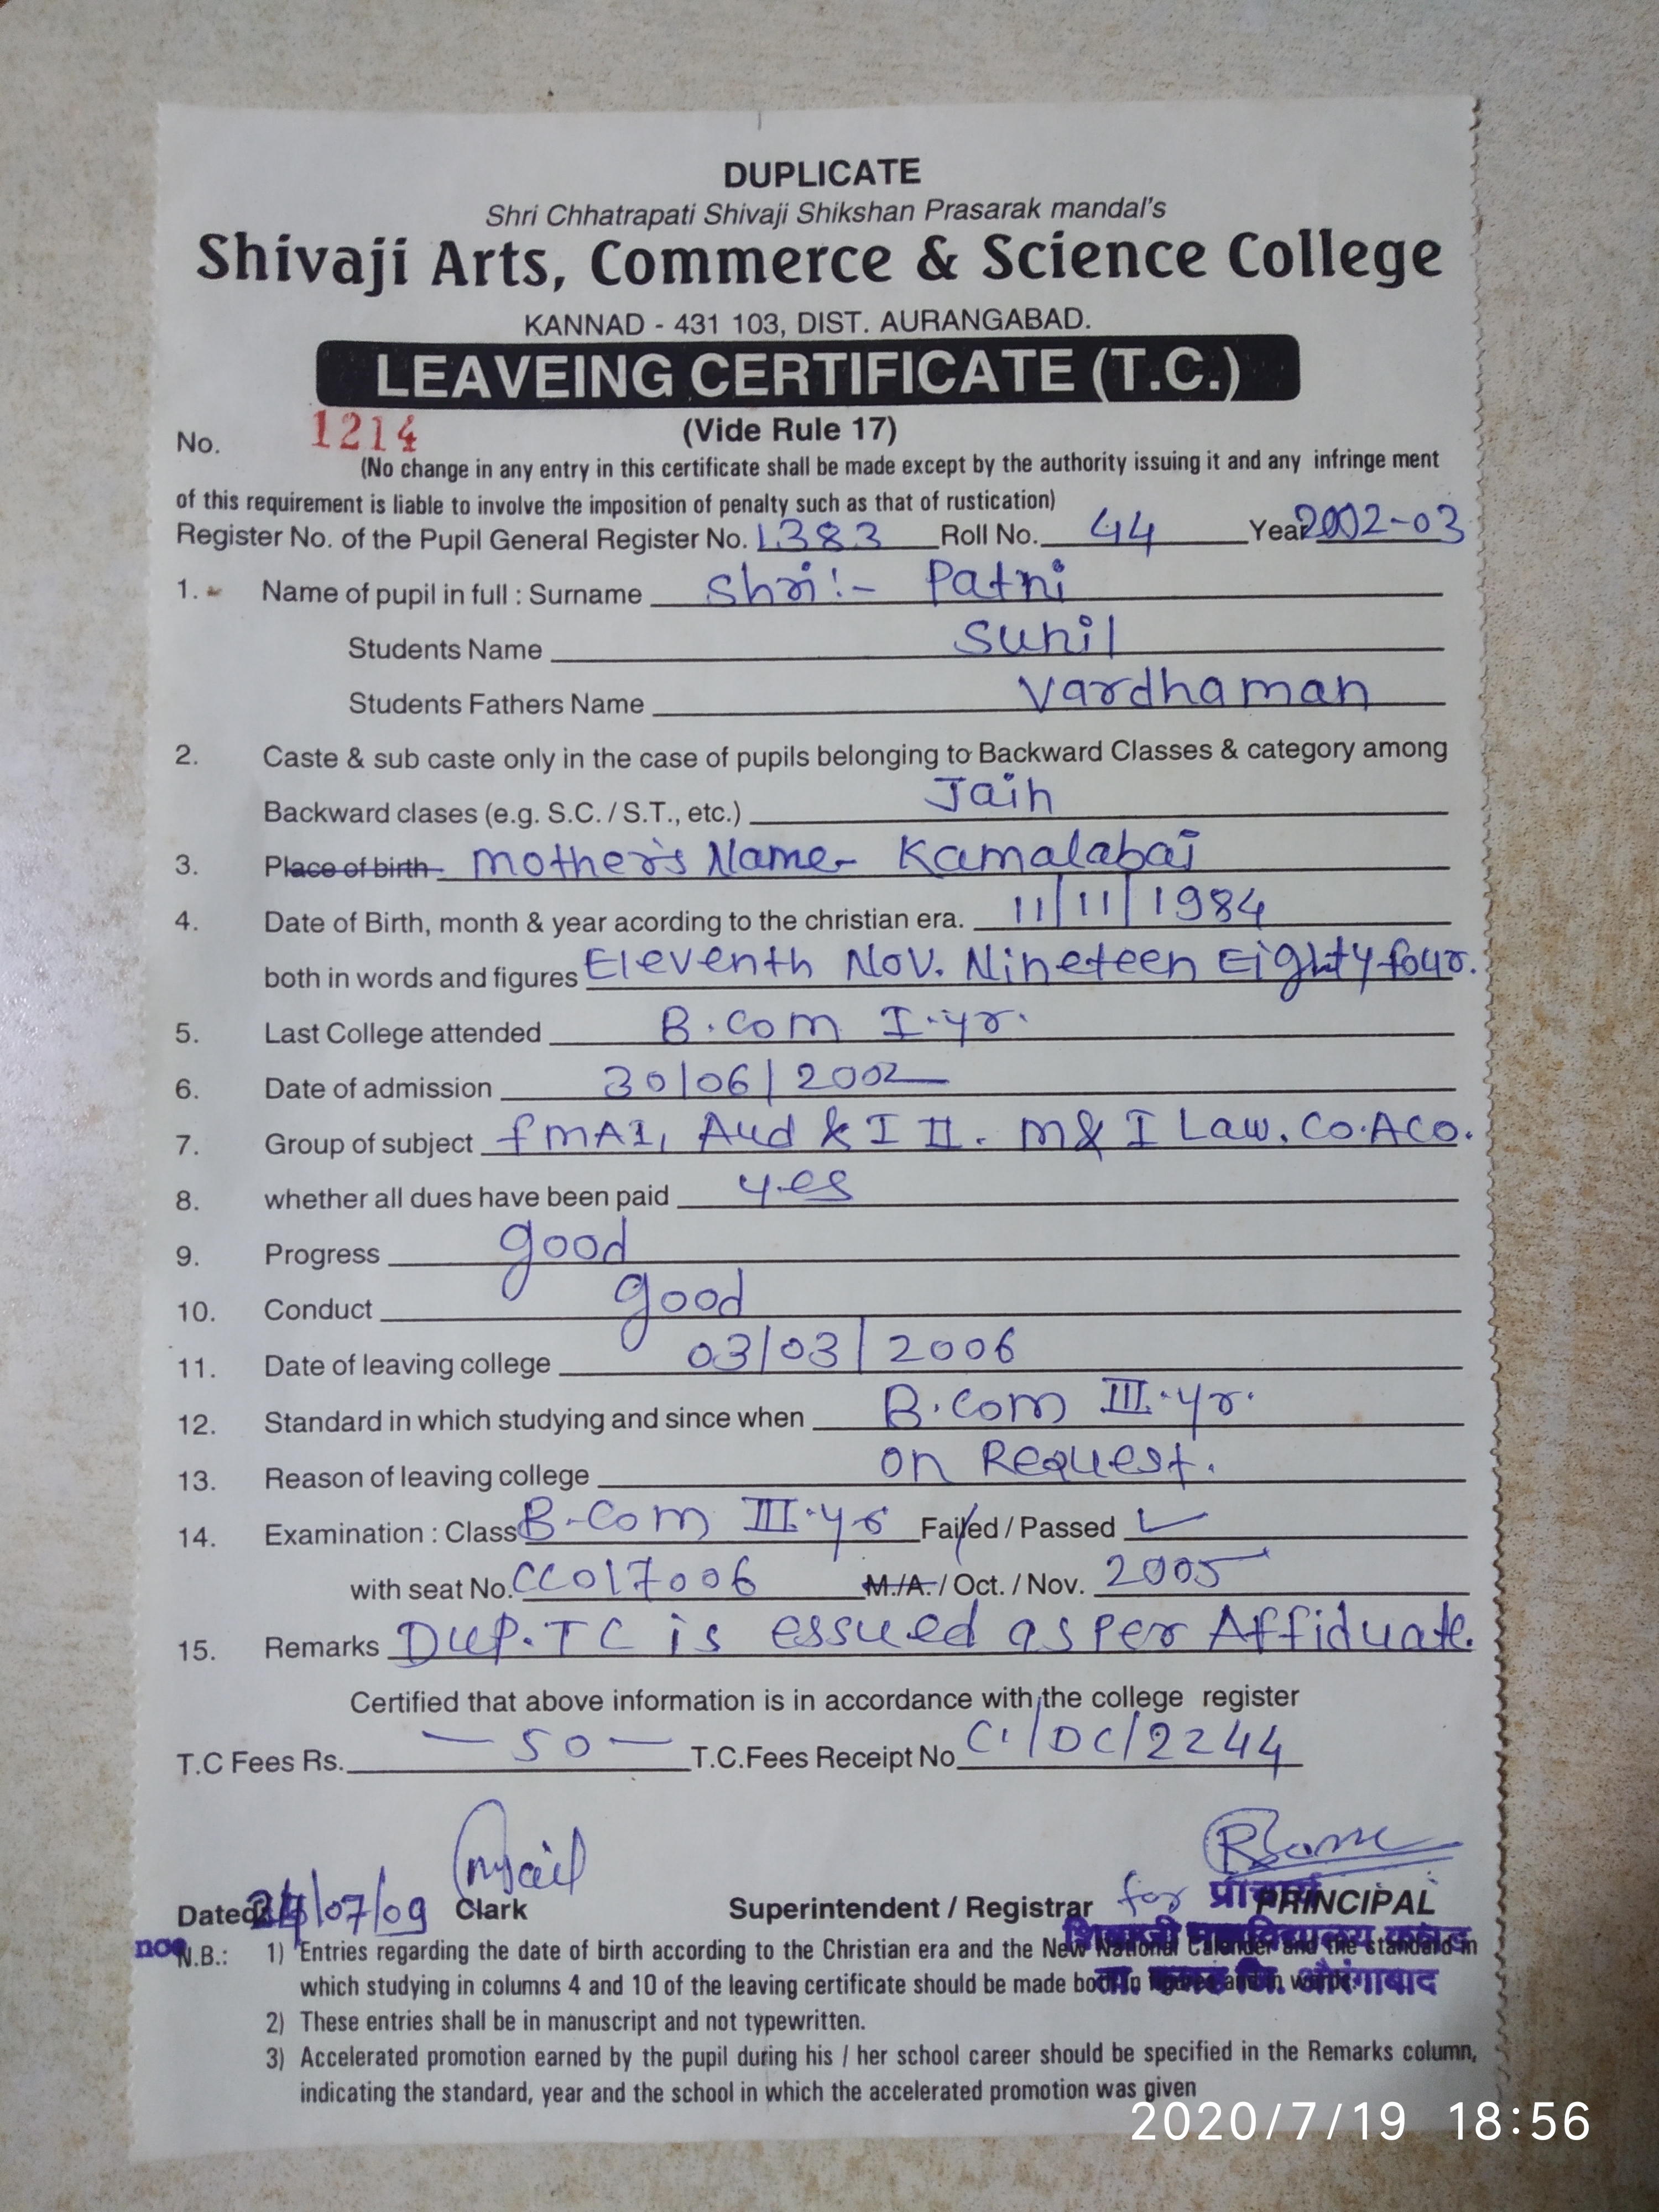 DUPLICATE
Shri Chhatrapati Shivaji Shikshan Prasarak mandal's
Shivaji Arts, Commerce & Science College
KANNAD - 431 103, DIST. AURANGABAD.
LEAVEING CERTIFICATE (T.C.)
No. 1214 (Vide Rule 17)
(No change in any entry in this certificate shall be made except by the authority issuing it and any infringe ment
of this requirement is liable to involve the imposition of penalty such as that of rustication)
Register No. of the Pupil General Register No. 1383 Roll No. 44 Year 2002-03
1. Name of pupil in full : Surname Shri:- Patni
Students Name Sunil
Students Fathers Name Vardhaman
2. Caste & sub caste only in the case of pupils belonging to Backward Classes & category among
Backward clases (e.g. S.C. / S.T., etc.) Jain
3. Place of birth Mother's Name- Kamalabai
4. Date of Birth, month & year acording to the christian era. 11/11/1984
both in words and figures Eleventh Nov. Nineteen Eighty four.
5. Last College attended B.Com I.yr.
6. Date of admission 30/06/2002
7. Group of subject fmAI, Aud & I II. M& I Law. Co.ACo.
8. whether all dues have been paid yes
9. Progress good
10. Conduct good
11. Date of leaving college 03/03/2006
12. Standard in which studying and since when B.Com III.yr.
13. Reason of leaving college on Request.
14. Examination : Class B.Com III.yr Failed / Passed ✓
with seat No. CC017006 M./A. / Oct. / Nov. 2005
15. Remarks Dup. TC is essued as per Affiduate.
Certified that above information is in accordance with the college register
T.C Fees Rs. — 50 — T.C.Fees Receipt No C./DC/2244
Dated 24/07/09 Clark Superintendent / Registrar for प्राचार्य PRINCIPAL
शिवाजी महाविद्यालय कन्नड
ता. कन्नड जि. औरंगाबाद
N.B.: 1) Entries regarding the date of birth according to the Christian era and the New National Calender and the standard in
which studying in columns 4 and 10 of the leaving certificate should be made both in figures and in words.
2) These entries shall be in manuscript and not typewritten.
3) Accelerated promotion earned by the pupil during his / her school career should be specified in the Remarks column,
indicating the standard, year and the school in which the accelerated promotion was given
2020/7/19 18:56